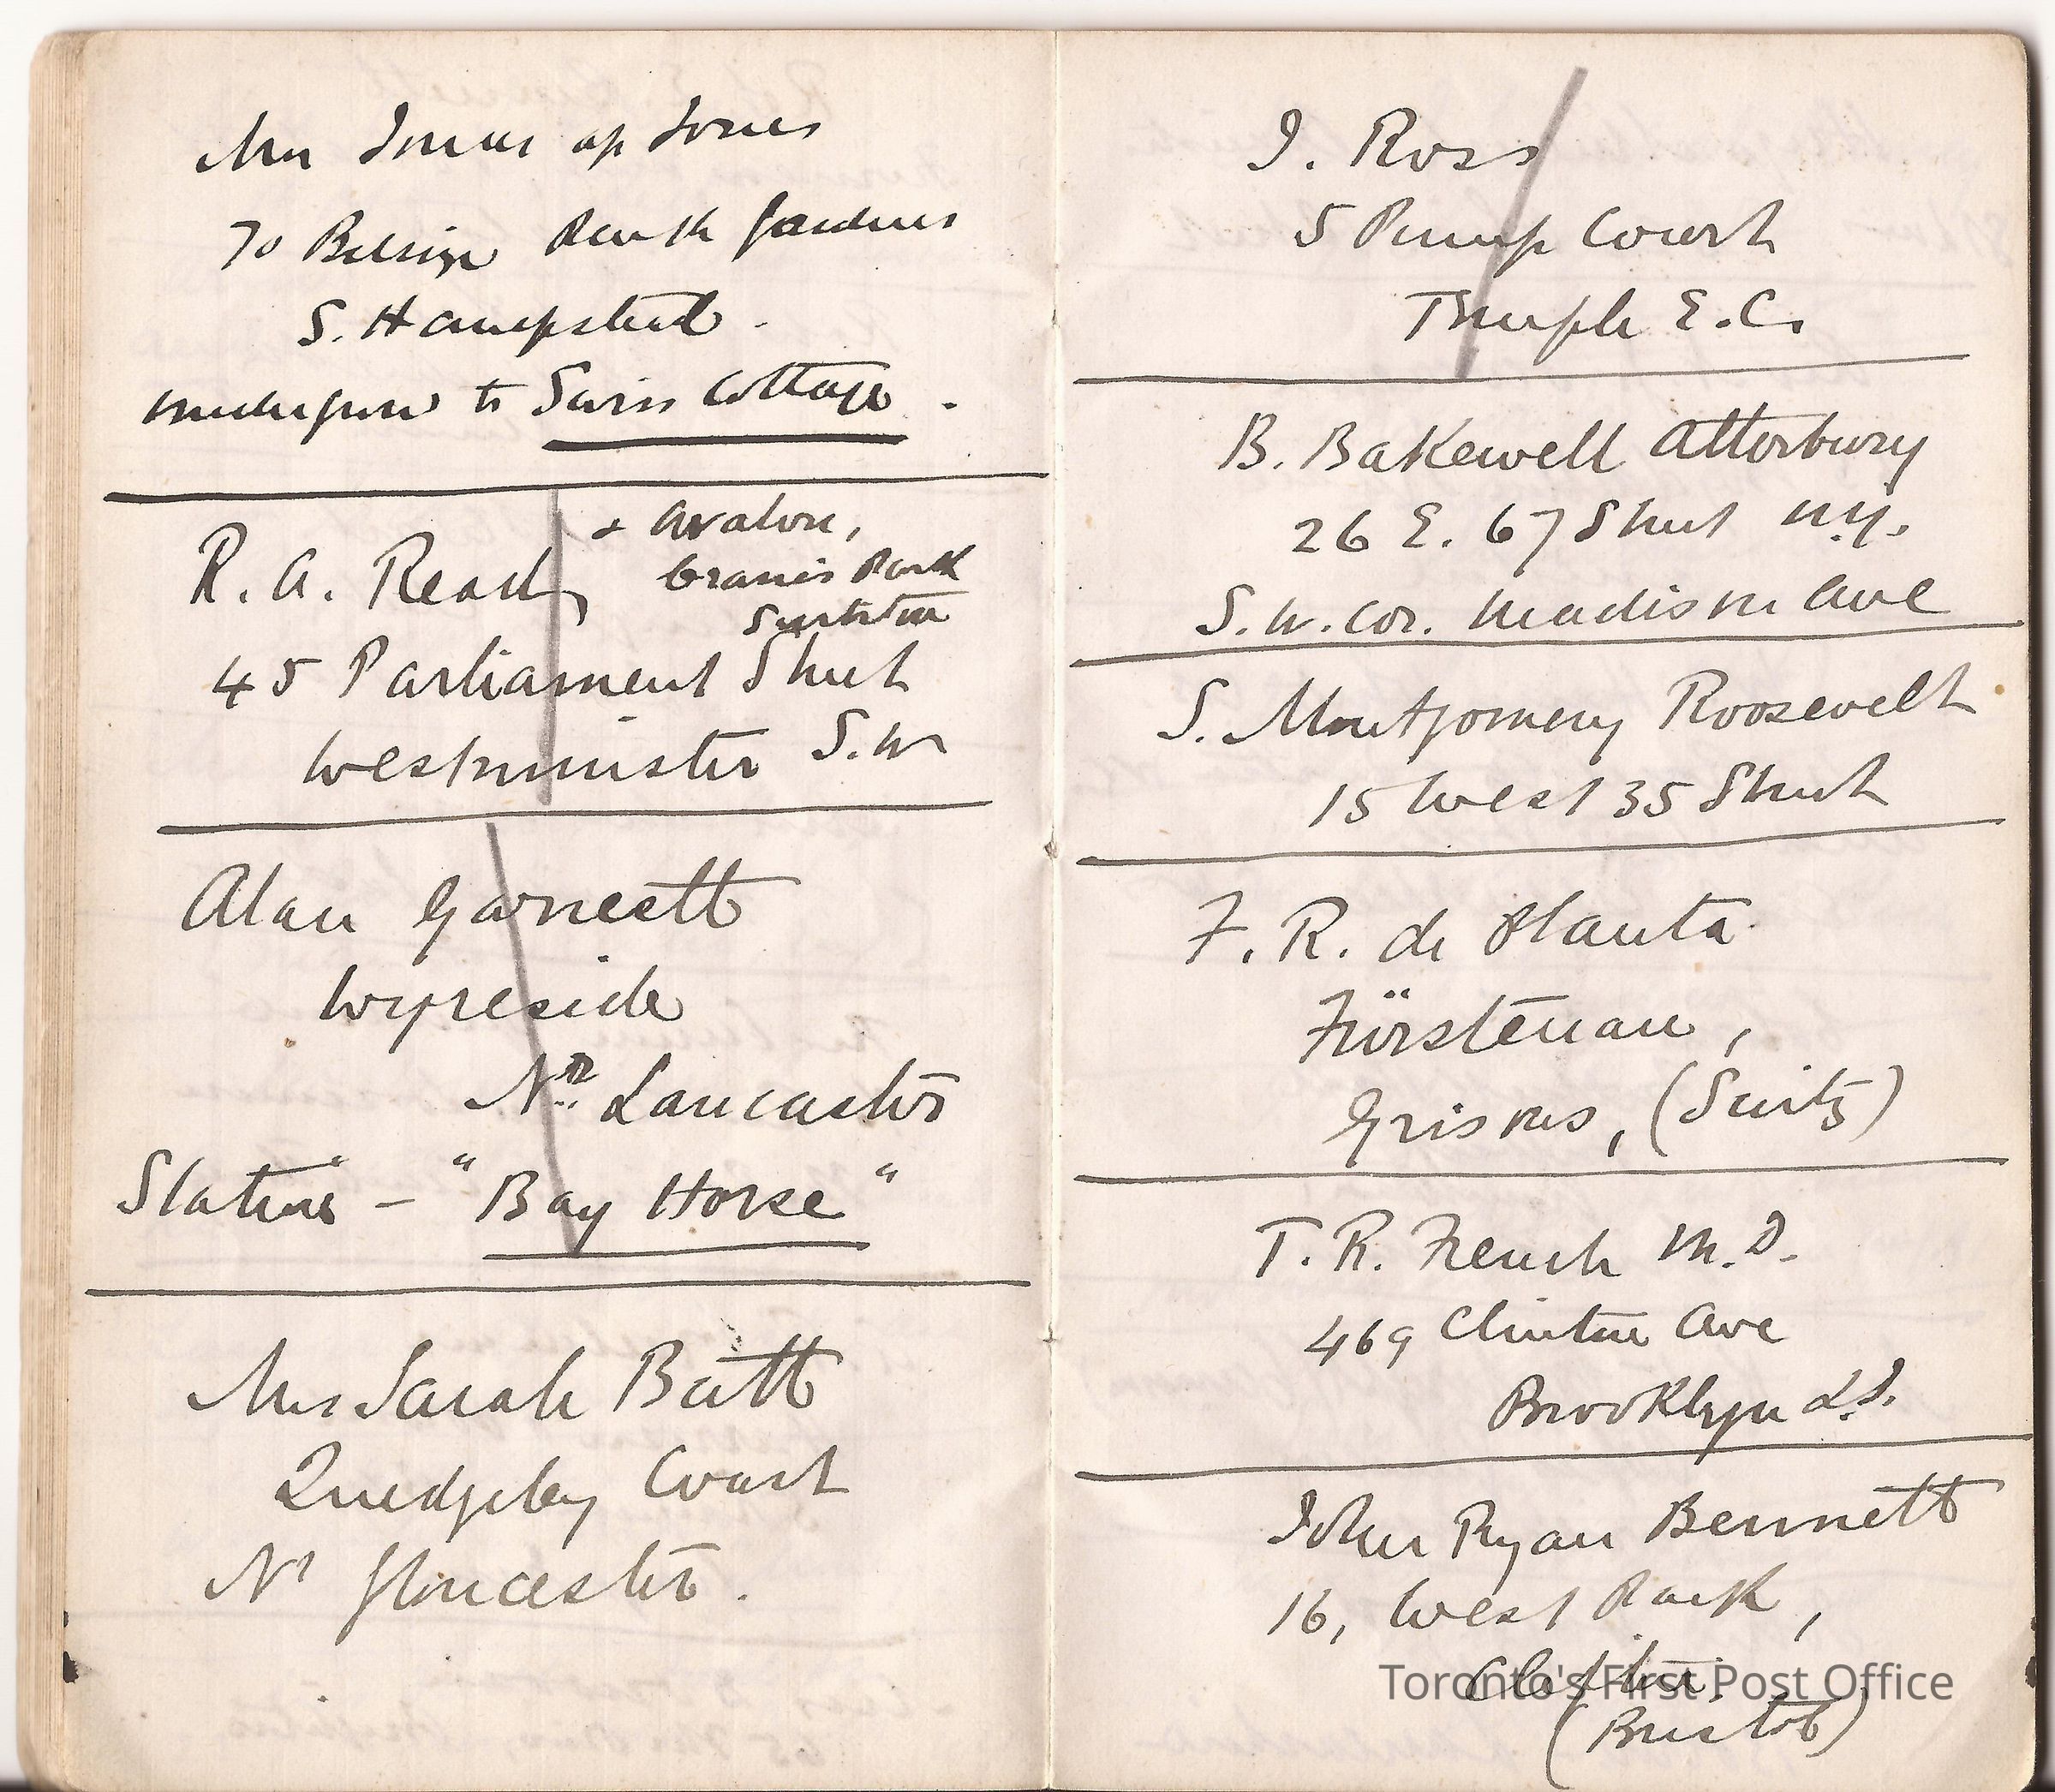 Mrs Jonas ap Jones
70 Belsize Park Gardens
S. Hampstead.
to Swiss Cottage.
R. A. Read, + Avalon,
Cranes Park
Surbiton
45 Parliament Street
Westminster S.W
Alan Garnett
Wyreside
Nr. Lancaster
Station - "Bay Horse"
Mrs Sarah Batt
Quedgeley Court
Nr Gloucester.
J. Ross
5 Pump Court
Temple E.C.
B. Bakewell Atterbury
26 E. 67 Street N.Y.
S.W. Cor. Madison Ave
S. Montgomery Roosevelt
15 West 35 Street
F. R. de Planta
Fürstenau,
Grisons, (Switz)
T. R. French M.D.
469 Clinton Ave
Brooklyn L.I.
John Ryan Bennett
16, West Park,
Clifton.
(Bristol)
Toronto's First Post Office